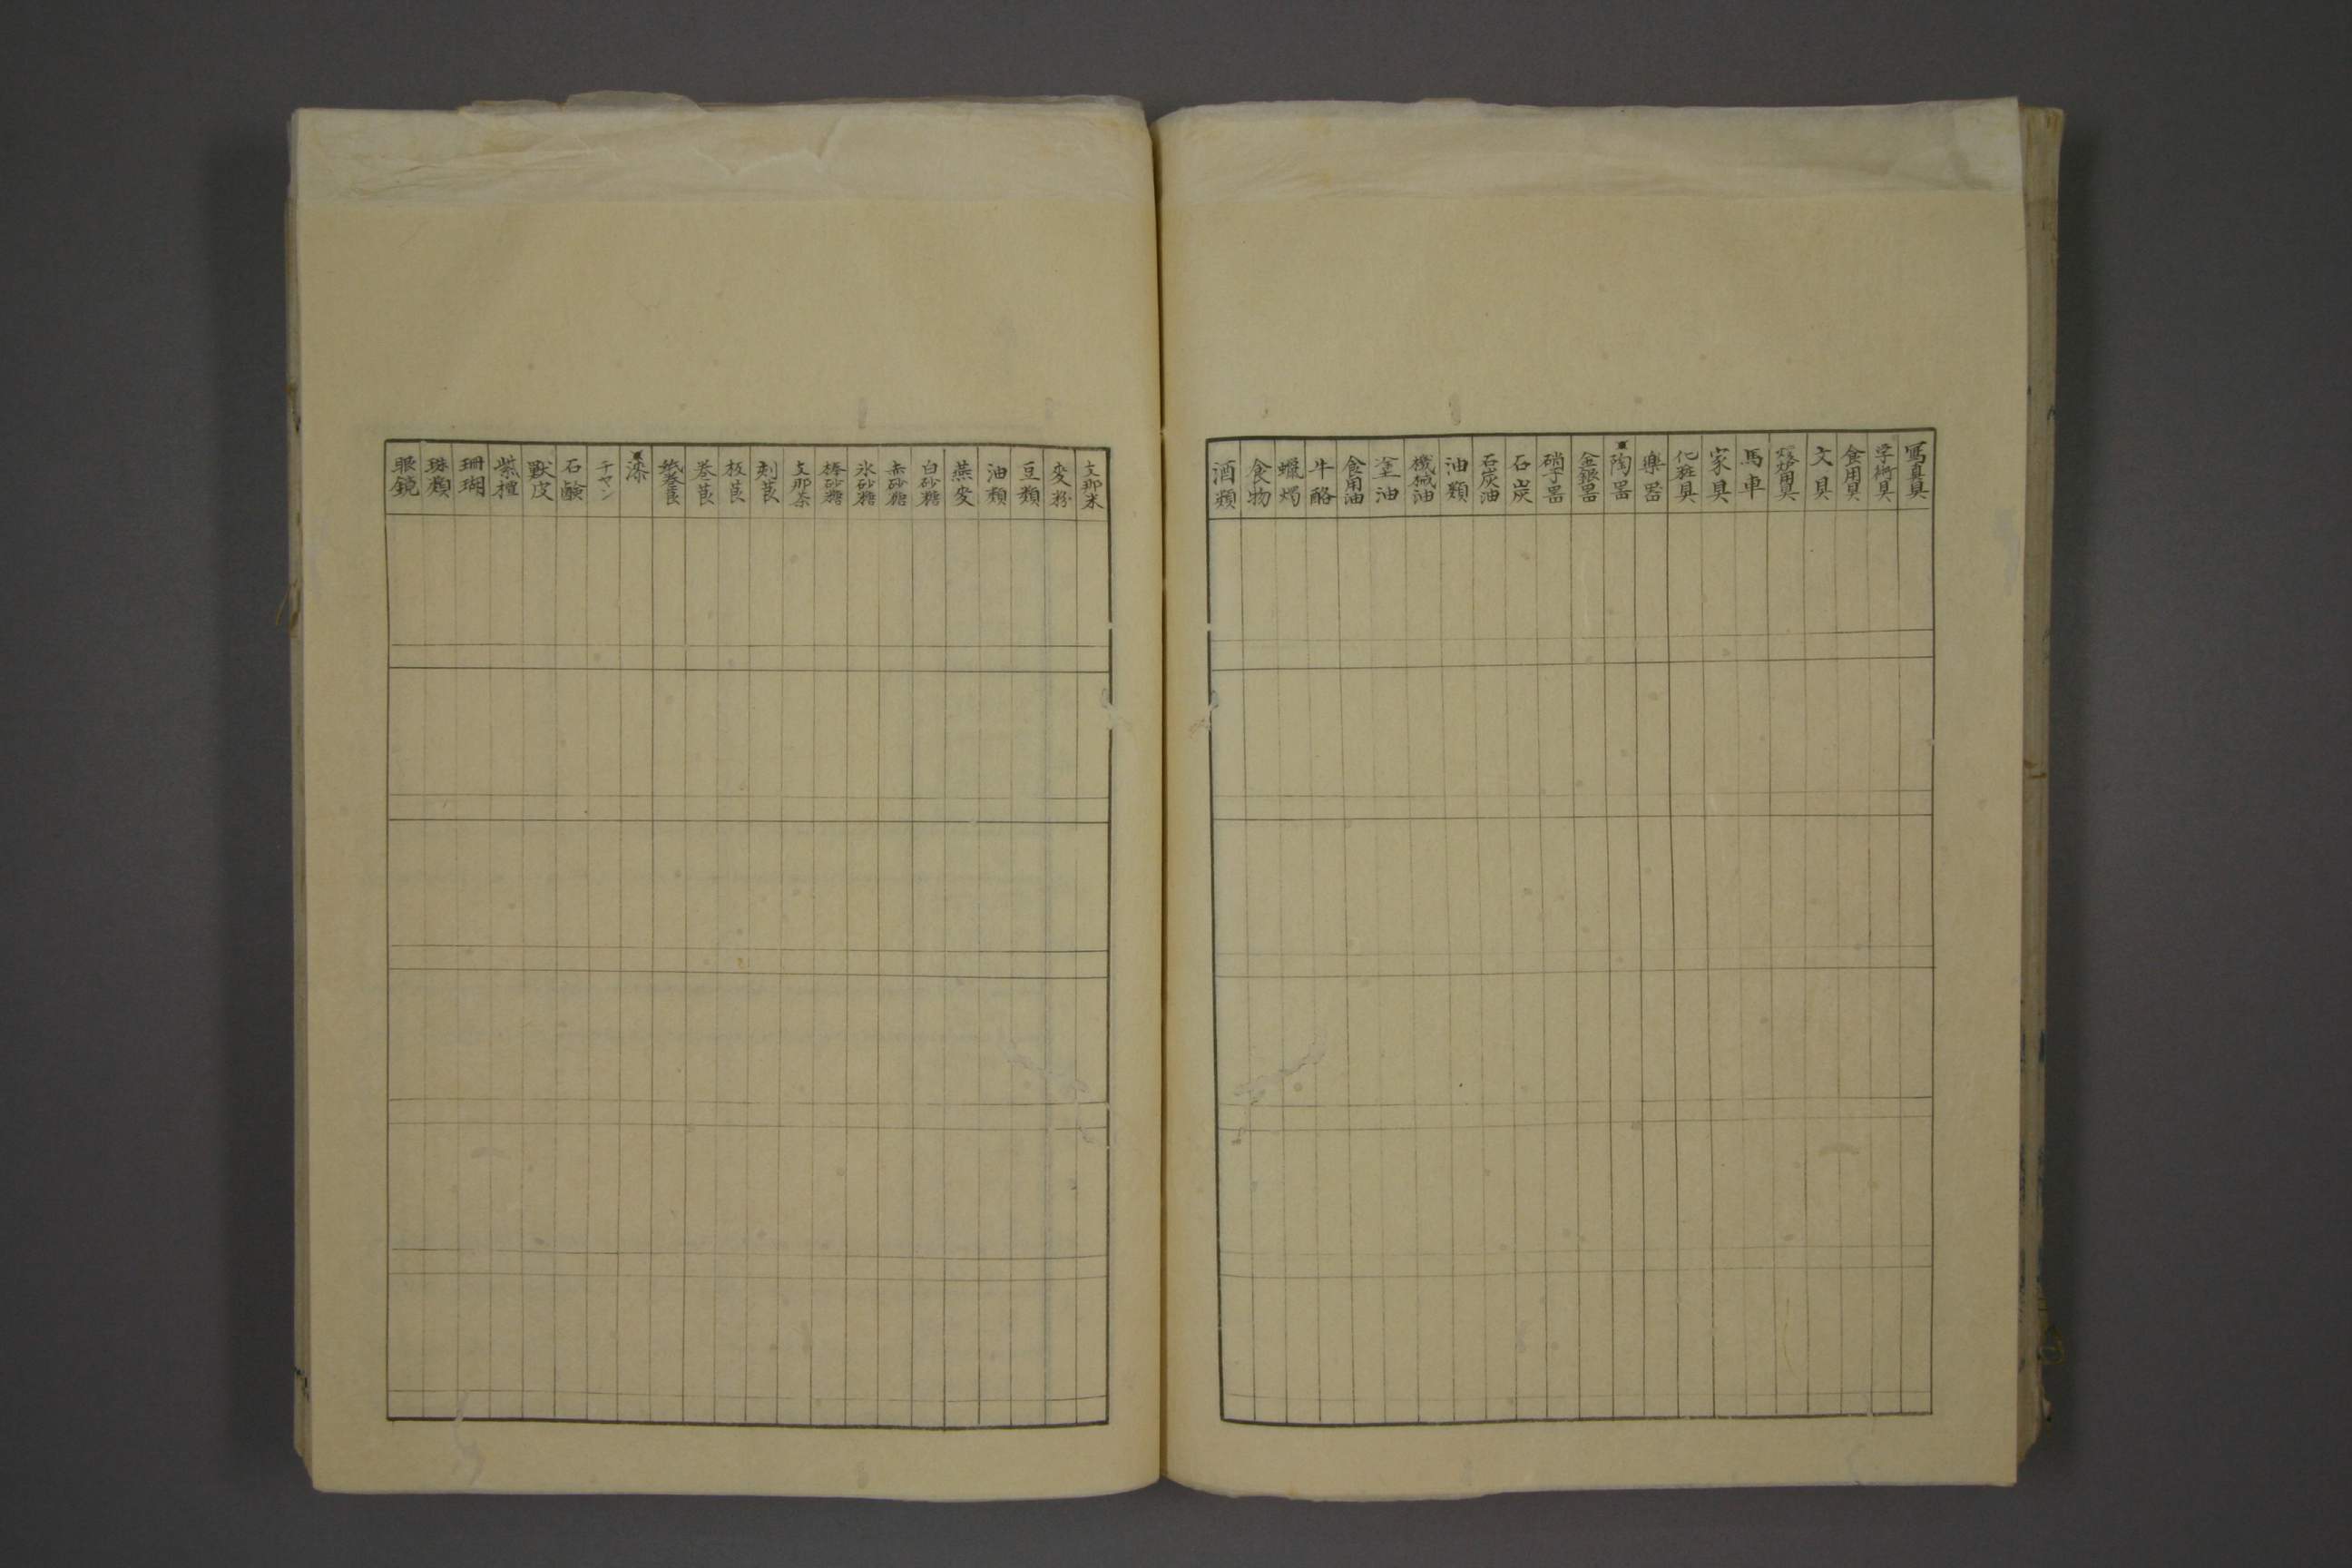 寫真具
学術具
食用具
文具
馬車
家具
化粧具
樂器
陶器
金銀器
硝子器
石炭
石炭油
油類
機械油
塗油
食用油
牛酪
蠟燭
食物
酒類
支那米
麥粉
豆類
油類
燕麥
白砂糖
赤砂糖
氷砂糖
棒砂糖
支那茶
刻莨
板莨
巻莨
紙巻莨
漆
チヤン
石鹸
獸皮
紫檀
珊瑚
珠類
眼鏡